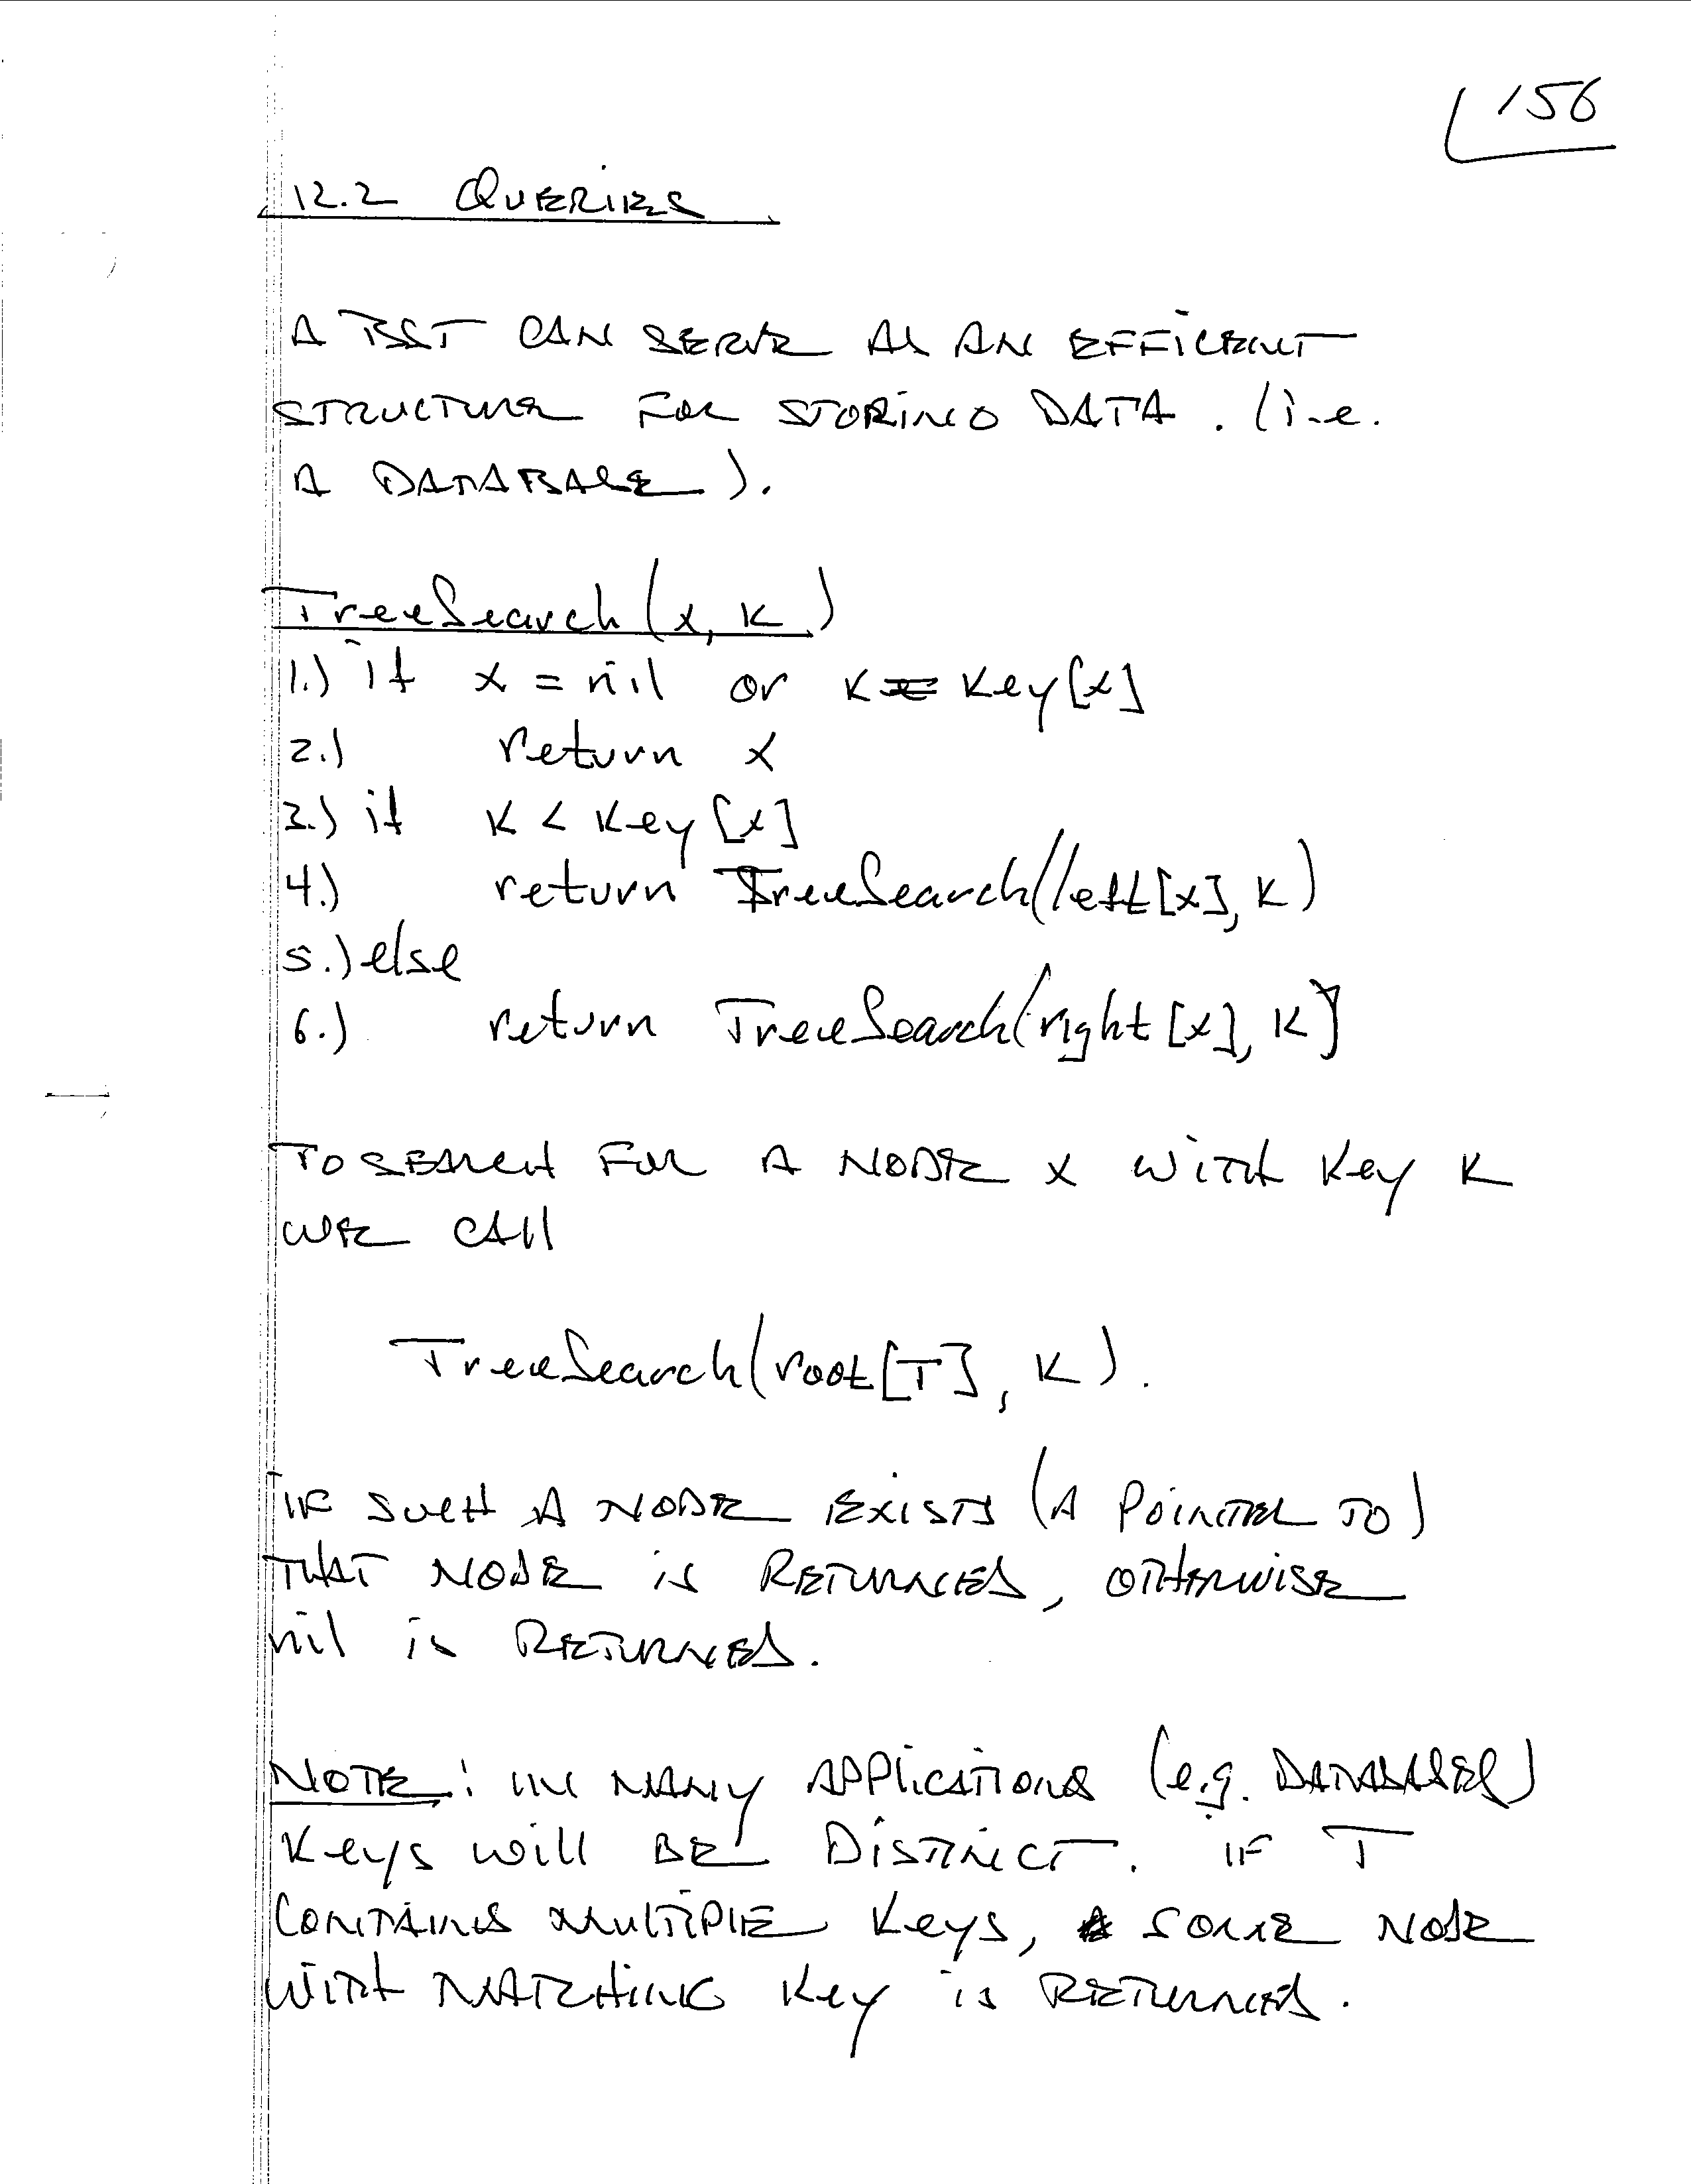 156
12.2 QUERIES
A BST CAN SERVE AS AN EFFICIENT
STRUCTURE FOR STORING DATA. (i.e.
A DATABASE).
TreeSearch(x, k)
1.) if x = nil or k = key[x]
2.) return x
3.) if k < key[x]
4.) return TreeSearch(left[x], k)
5.) else
6.) return TreeSearch(right[x], k)
TO SEARCH FOR A NODE x WITH key k
WE CALL
TreeSearch(root[T], k).
IF SUCH A NODE EXISTS (A POINTER TO)
THAT NODE is RETURNED, OTHERWISE
nil is RETURNED.
NOTE: IN MANY APPLICATIONS (e.g. DATABASES)
Keys will BE DISTINCT. IF T
CONTAINS MULTIPLE Keys, SOME NODE
WITH MATCHING Key is RETURNED.